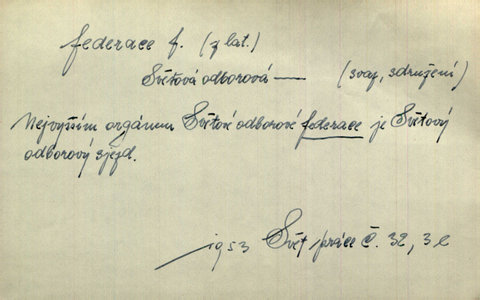 federace f. (z lat.)
Světová odborová — (svaz, sdružení)
Nejvyšším orgánem Světové odborové federace je Světový
odborový sjezd.
1953 Svět práce č. 32, 3 c